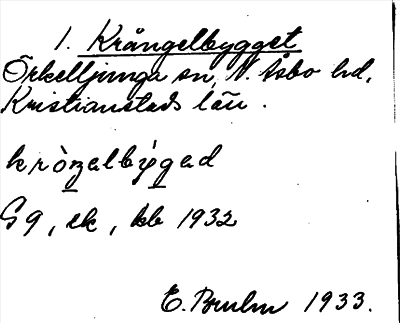 1. Krångelbygget
Örkelljunga sn, N. Åsbo hd,
Kristianstads län.
kròŋəlbýgəd
G 9, ek, bb 1932
E. Bruhn 1933.